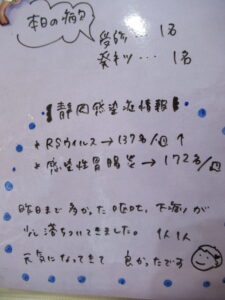 本日の病欠
発熱 1名
発疹… 1名
静岡感染症情報
* RSウイルス→137名/週 ↑
* 感染性胃腸炎→172名/週
昨日まで多かった嘔吐、下痢が
少し落ちついてきました。
元気になってきて 良かったです